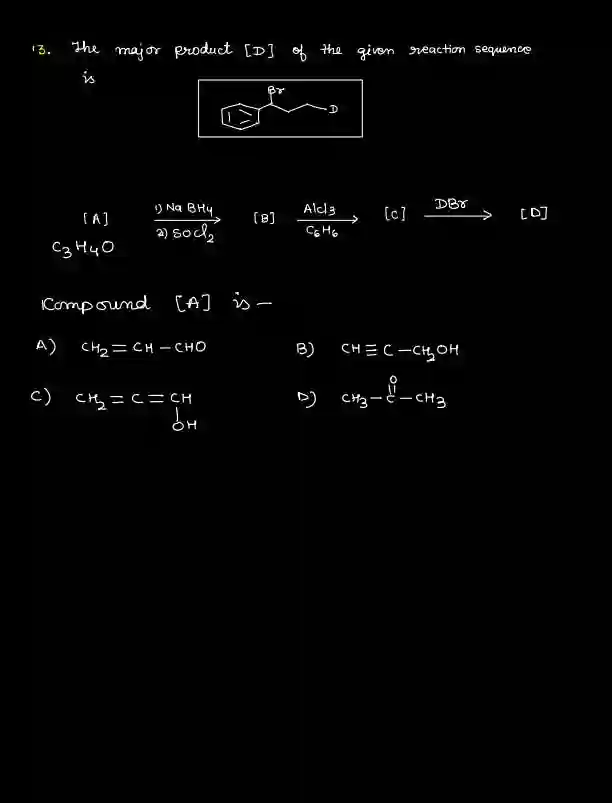 13. The major product [D] of the given reaction sequence
is
Br
D
[A] 1) NaBH4 2) SOCl2 [B] AlCl3 C6H6 [C] DBr [D]
C3H4O
Compound [A] is –
A) CH2=CH–CHO B) CH≡C–CH2OH
C) CH2=C=CH
OH
D) CH3–C–CH3
O